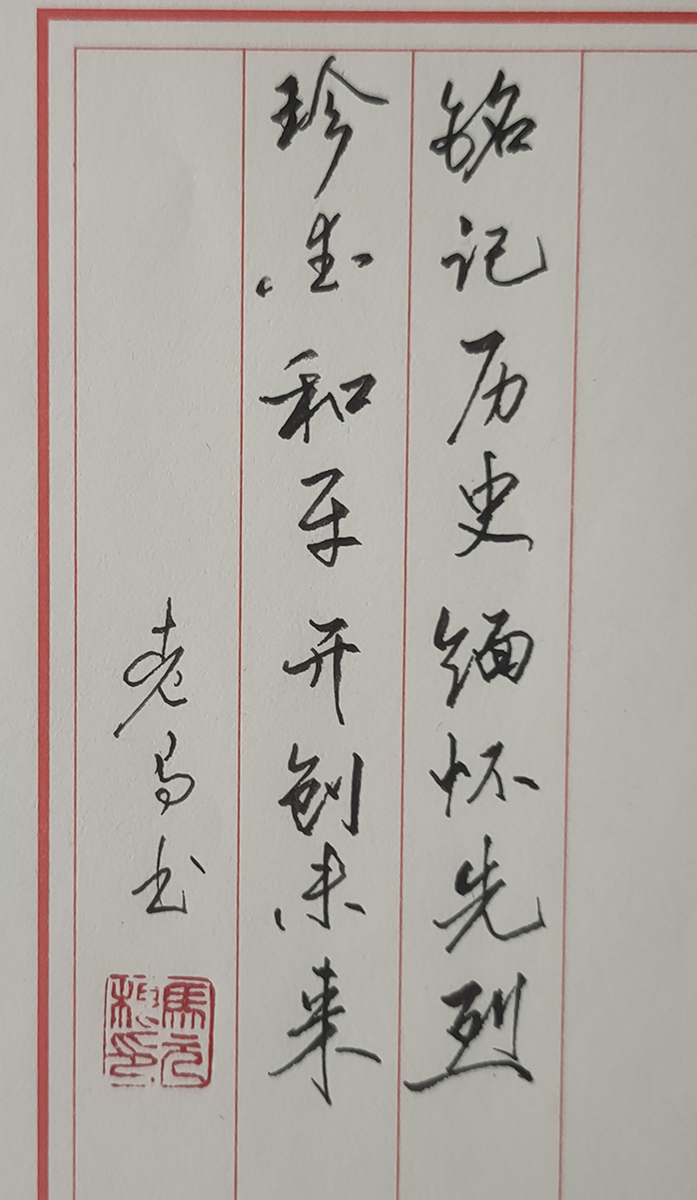 铭记历史缅怀先烈
珍爱和平开创未来
老马书
馬元